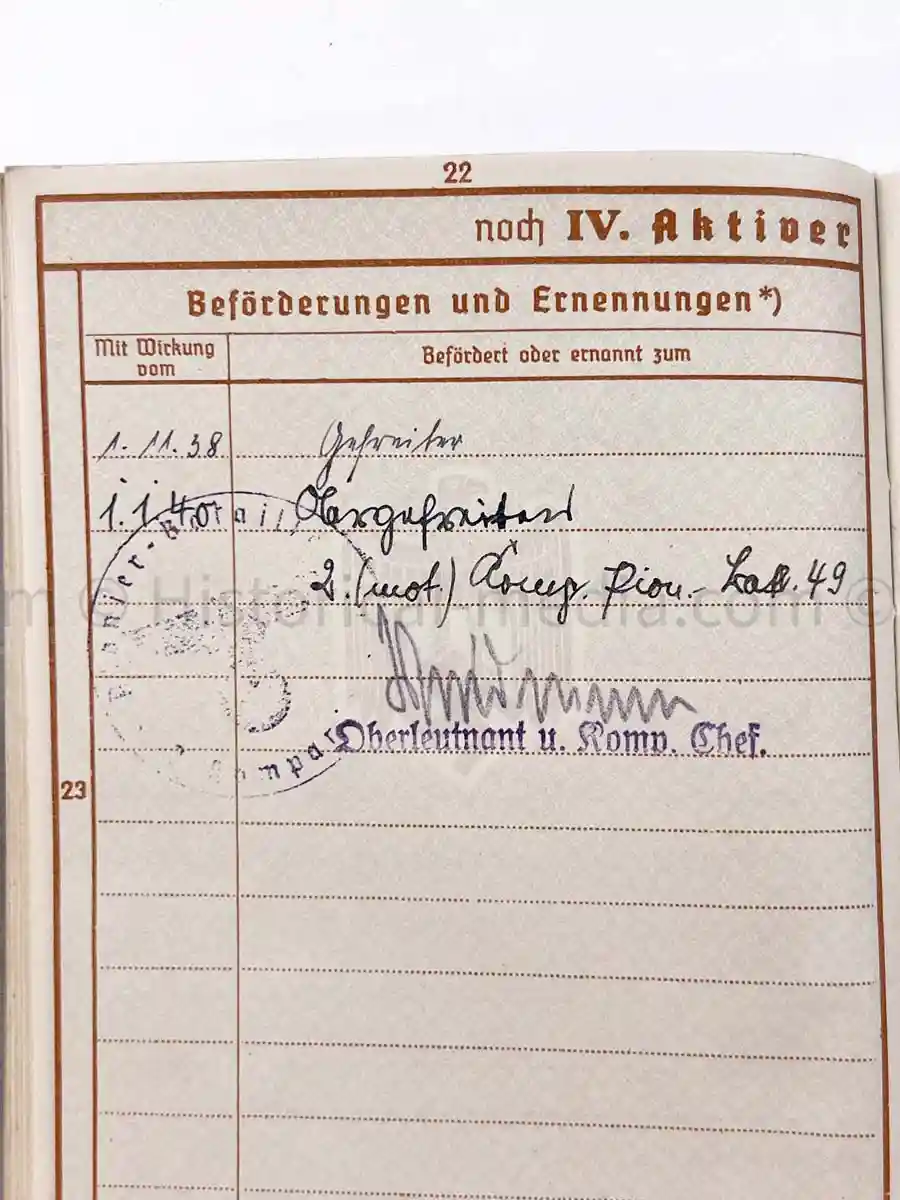 22
noch IV. Aktiver
Beförderungen und Ernennungen*)
Mit Wirkung vom
Befördert oder ernannt zum
1. 11. 38 Gefreiter
1. 1. 40 Obergefreiten
2. (mot.) Komp. Pion.-Batl. 49
Oberleutnant u. Komp. Chef.
23
Pionier-Batail
Kompa
© Historical-media.com ©